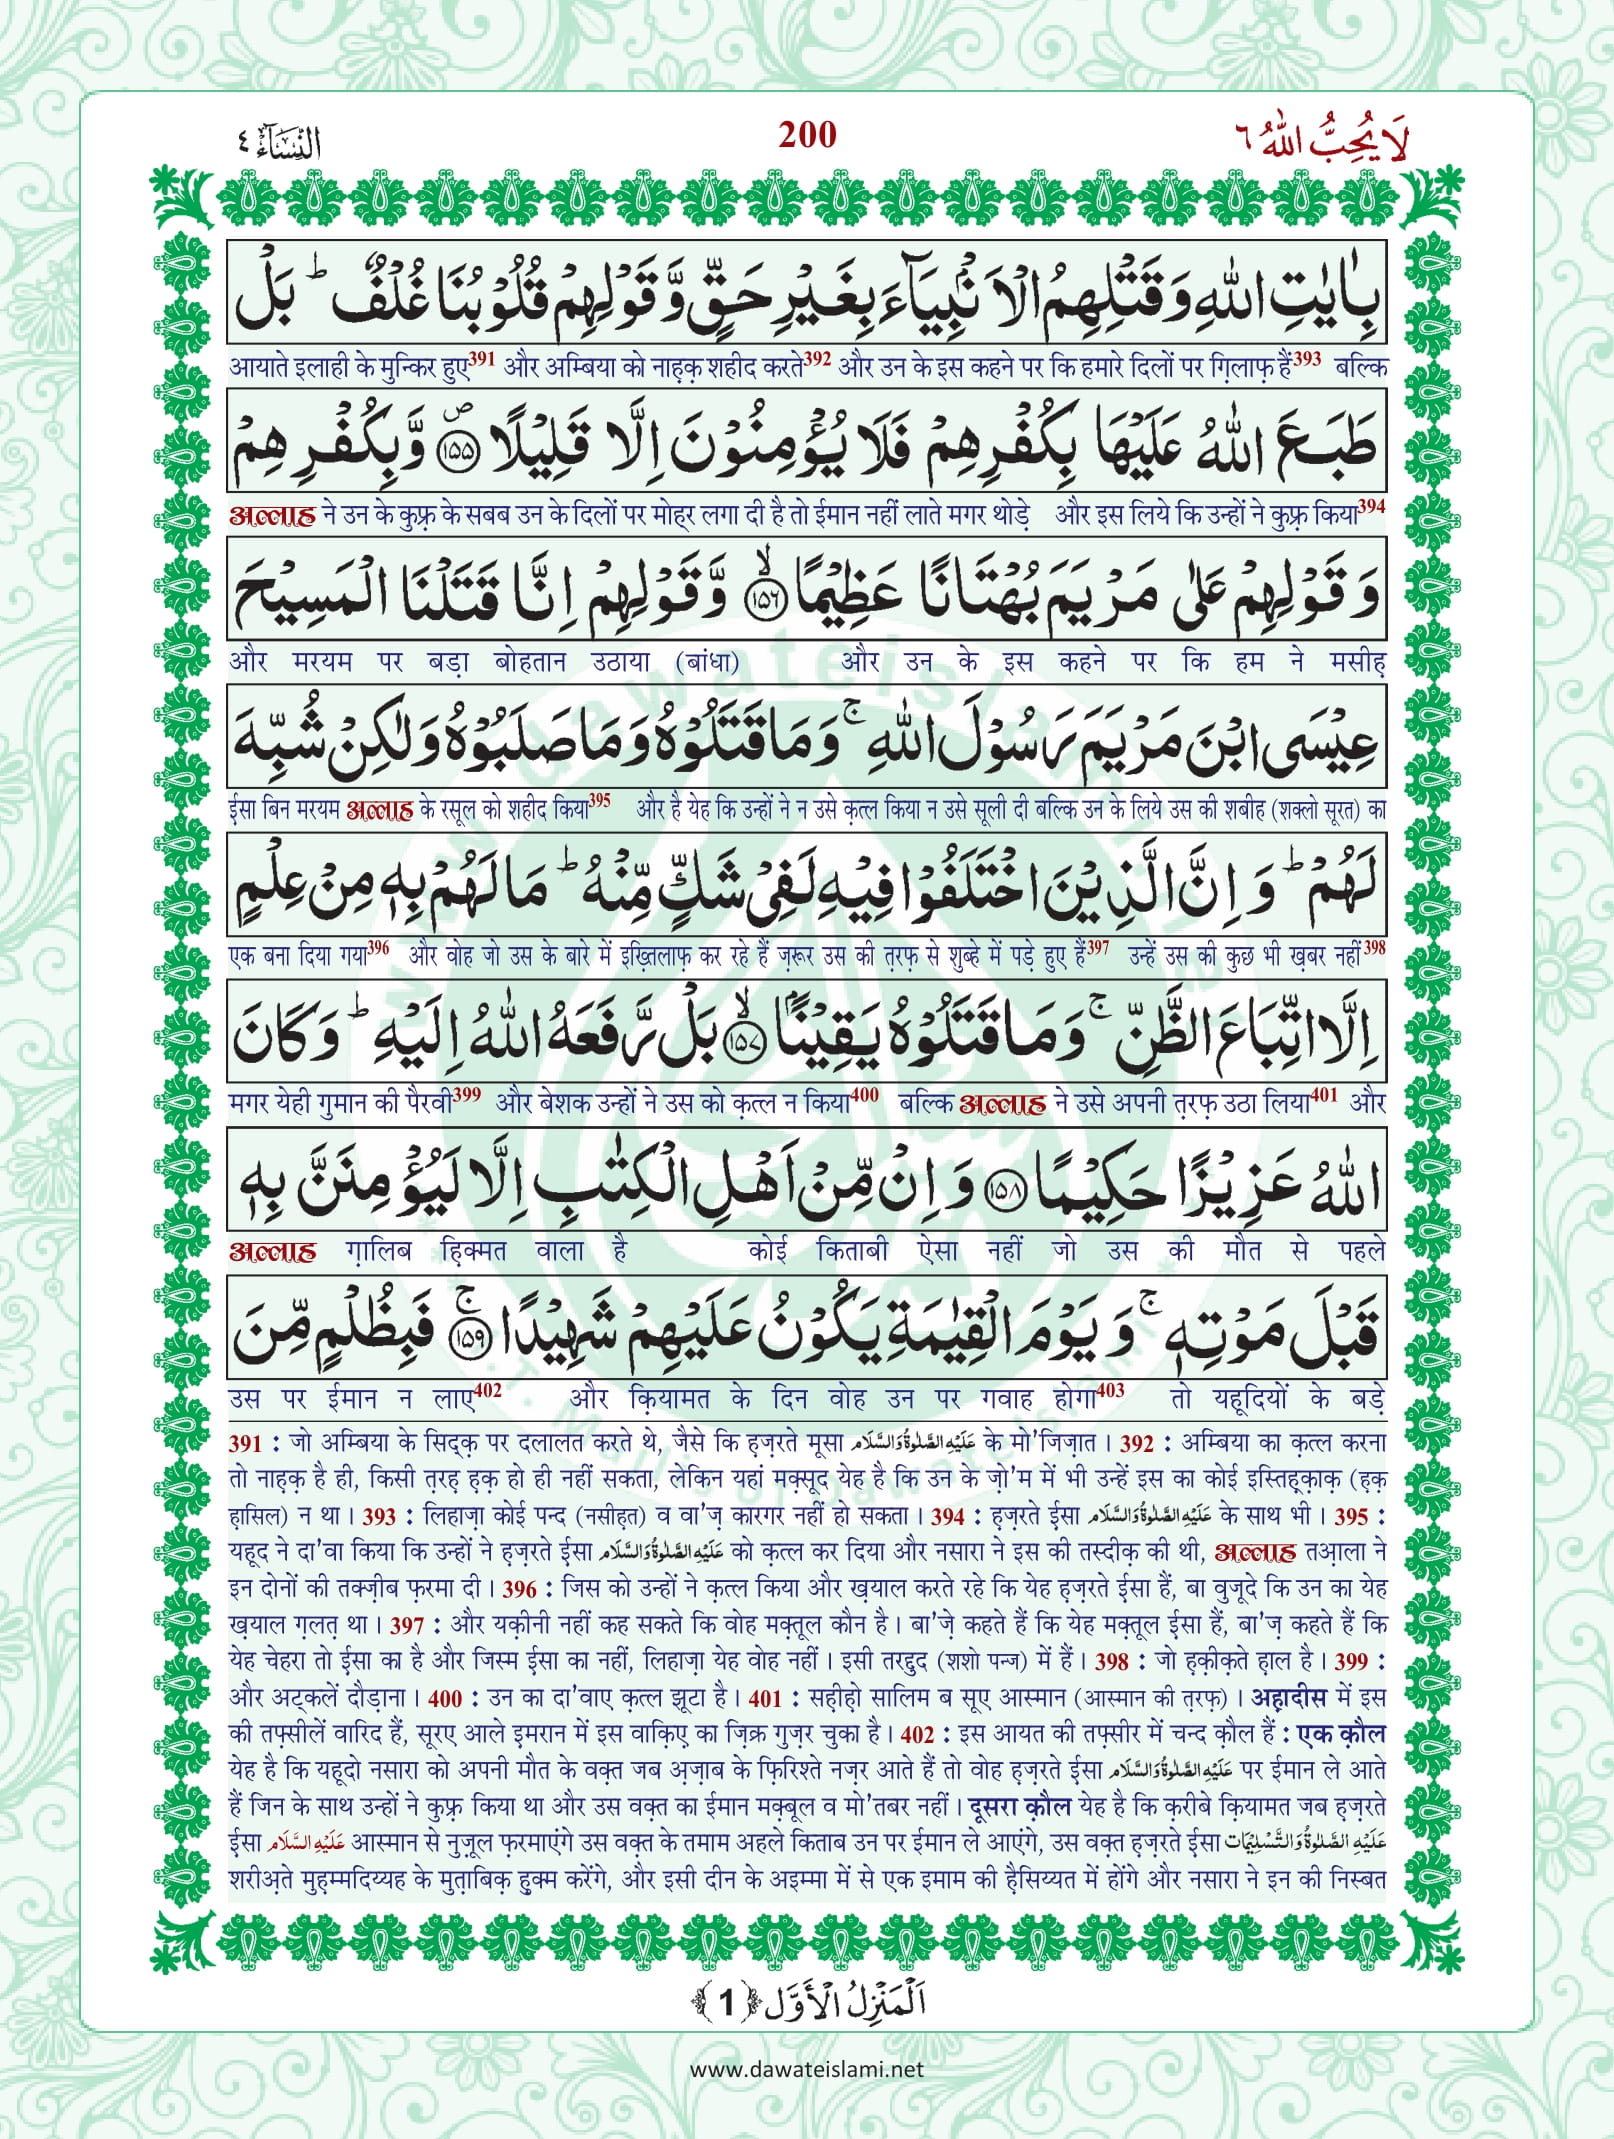 النِّسَآء ٤
200
لَا يُحِبُّ اللّٰهُ ٦
بِاٰيٰتِ اللّٰهِ وَقَتْلِهِمُ الْاَنْۢبِيَآءَ بِغَيْرِ حَقٍّ وَّقَوْلِهِمْ قُلُوْبُنَا غُلْفٌ ؕ بَلْ
आयाते इलाही के मुन्किर हुए391 और अम्बिया को नाह़क़ शहीद करते392 और उन के इस कहने पर कि हमारे दिलों पर ग़िलाफ़ हैं393 बल्कि
طَبَعَ اللّٰهُ عَلَيْهَا بِكُفْرِهِمْ فَلَا يُؤْمِنُوْنَ اِلَّا قَلِيْلًا ۪﴿۱۵۵﴾ وَّبِكُفْرِهِمْ
अल्लाह ने उन के कुफ़्र के सबब उन के दिलों पर मोह्र लगा दी है तो ईमान नहीं लाते मगर थोड़े और इस लिये कि उन्हों ने कुफ़्र किया394
وَقَوْلِهِمْ عَلٰى مَرْيَمَ بُهْتَانًا عَظِيْمًا ۙ﴿۱۵۶﴾ وَّقَوْلِهِمْ اِنَّا قَتَلْنَا الْمَسِيْحَ
और मरयम पर बड़ा बोहतान उठाया (बांधा) और उन के इस कहने पर कि हम ने मसीह़
عِيْسَى ابْنَ مَرْيَمَ رَسُوْلَ اللّٰهِ ۚ وَمَا قَتَلُوْهُ وَمَا صَلَبُوْهُ وَلٰكِنْ شُبِّهَ
ईसा बिन मरयम अल्लाह के रसूल को शहीद किया395 और है येह कि उन्हों ने न उसे क़त्ल किया न उसे सूली दी बल्कि उन के लिये उस की शबीह (शक्लो सूरत) का
لَهُمْ ؕ وَاِنَّ الَّذِيْنَ اخْتَلَفُوْا فِيْهِ لَفِيْ شَكٍّ مِّنْهُ ؕ مَا لَهُمْ بِهٖ مِنْ عِلْمٍ
एक बना दिया गया396 और वोह जो उस के बारे में इख़्तिलाफ़ कर रहे हैं ज़रूर उस की त़रफ़ से शुब्हे में पड़े हुए हैं397 उन्हें उस की कुछ भी ख़बर नहीं398
اِلَّا اتِّبَاعَ الظَّنِّ ۚ وَمَا قَتَلُوْهُ يَقِيْنًۢا ۙ﴿۱۵۷﴾ بَلْ رَّفَعَهُ اللّٰهُ اِلَيْهِ ؕ وَكَانَ
मगर येही गुमान की पैरवी399 और बेशक उन्हों ने उस को क़त्ल न किया400 बल्कि अल्लाह ने उसे अपनी त़रफ़ उठा लिया401 और
اللّٰهُ عَزِيْزًا حَكِيْمًا ﴿۱۵۸﴾ وَاِنْ مِّنْ اَهْلِ الْكِتٰبِ اِلَّا لَيُؤْمِنَنَّ بِهٖ
अल्लाह ग़ालिब ह़िक्मत वाला है कोई किताबी ऐसा नहीं जो उस की मौत से पहले
قَبْلَ مَوْتِهٖ ۚ وَيَوْمَ الْقِيٰمَةِ يَكُوْنُ عَلَيْهِمْ شَهِيْدًا ۚ﴿۱۵۹﴾ فَبِظُلْمٍ مِّنَ
उस पर ईमान न लाए402 और क़ियामत के दिन वोह उन पर गवाह होगा403 तो यहूदियों के बड़े
391 : जो अम्बिया के सिद्क़ पर दलालत करते थे, जैसे कि ह़ज़रते मूसा عَلَيْهِ الصَّلٰوةُ وَالسَّلَام के मो'जिज़ात। 392 : अम्बिया का क़त्ल करना
तो नाह़क़ है ही, किसी त़रह़ ह़क़ हो ही नहीं सकता, लेकिन यहां मक़्सूद येह है कि उन के ज़ो'म में भी उन्हें इस का कोई इस्तिह़्क़ाक़ (ह़क़
ह़ासिल) न था। 393 : लिहाज़ा कोई पन्द (नसीह़त) व वा'ज़ कारगर नहीं हो सकता। 394 : ह़ज़रते ईसा عَلَيْهِ الصَّلٰوةُ وَالسَّلَام के साथ भी। 395 :
यहूद ने दा'वा किया कि उन्हों ने ह़ज़रते ईसा عَلَيْهِ الصَّلٰوةُ وَالسَّلَام को क़त्ल कर दिया और नसारा ने इस की तस्दीक़ की थी, अल्लाह तआ़ला ने
इन दोनों की तक्ज़ीब फ़रमा दी। 396 : जिस को उन्हों ने क़त्ल किया और ख़याल करते रहे कि येह ह़ज़रते ईसा हैं, बा वुजूदे कि उन का येह
ख़याल ग़लत़ था। 397 : और यक़ीनी नहीं कह सकते कि वोह मक़्तूल कौन है। बा'ज़े कहते हैं कि येह मक़्तूल ईसा हैं, बा'ज़ कहते हैं कि
येह चेहरा तो ईसा का है और जिस्म ईसा का नहीं, लिहाज़ा येह वोह नहीं। इसी तरद्दुद (शशो पन्ज) में हैं। 398 : जो ह़क़ीक़ते ह़ाल है। 399 :
और अट्कलें दौड़ाना। 400 : उन का दा'वाए क़त्ल झूटा है। 401 : सह़ीह़ो सालिम ब सूए आस्मान (आस्मान की त़रफ़)। अह़ादीस में इस
की तफ़्सीलें वारिद हैं, सूरए आले इमरान में इस वाक़िए का ज़िक्र गुज़र चुका है। 402 : इस आयत की तफ़्सीर में चन्द क़ौल हैं : एक क़ौल
येह है कि यहूदो नसारा को अपनी मौत के वक़्त जब अ़ज़ाब के फ़िरिश्ते नज़र आते हैं तो वोह ह़ज़रते ईसा عَلَيْهِ الصَّلٰوةُ وَالسَّلَام पर ईमान ले आते
हैं जिन के साथ उन्हों ने कुफ़्र किया था और उस वक़्त का ईमान मक़्बूल व मो'तबर नहीं। दूसरा क़ौल येह है कि क़रीबे क़ियामत जब ह़ज़रते
ईसा عَلَيْهِ السَّلَام आस्मान से नुज़ूल फ़रमाएंगे उस वक़्त के तमाम अहले किताब उन पर ईमान ले आएंगे, उस वक़्त ह़ज़रते ईसा عَلَيْهِ الصَّلٰوةُ وَالتَّسْلِيْمَات
शरीअ़ते मुह़म्मदिय्यह के मुत़ाबिक़ ह़ुक्म करेंगे, और इसी दीन के अइम्मा में से एक इमाम की ह़ैसिय्यत में होंगे और नसारा ने इन की निस्बत
اَلْمَنْزِلُ الْاَوَّل ﴿1﴾
www.dawateislami.net